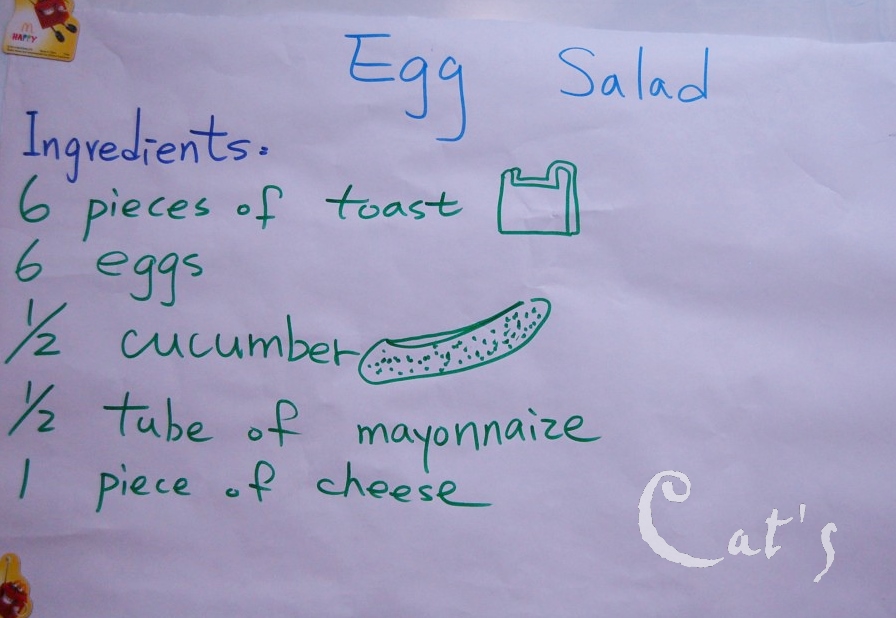 HAPPY
Egg Salad
Ingredients:
6 pieces of toast
6 eggs
1/2 cucumber
1/2 tube of mayonnaize
1 piece of cheese
Cat's